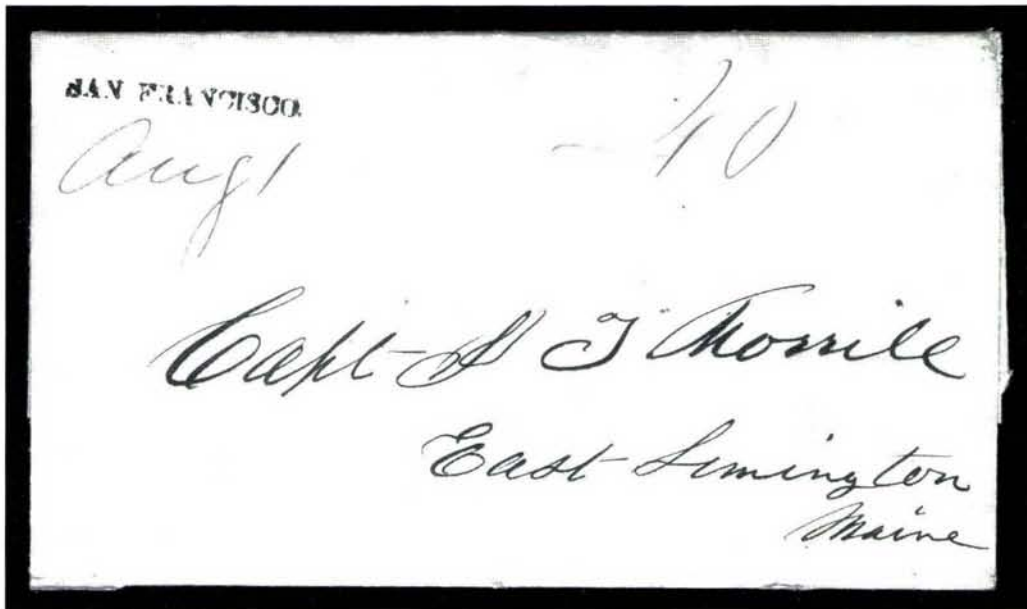 SAN FRANCISCO.
Aug 1 - 40
Capt S T Morrile
East Limington
Maine